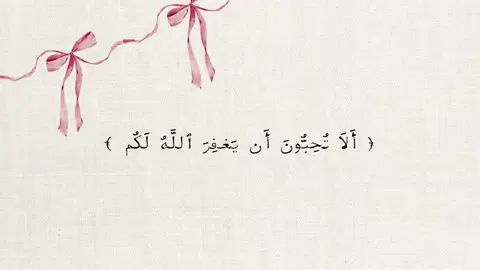 ﴿ أَلَا تُحِبُّونَ أَن يَغْفِرَ ٱللَّهُ لَكُم ﴾